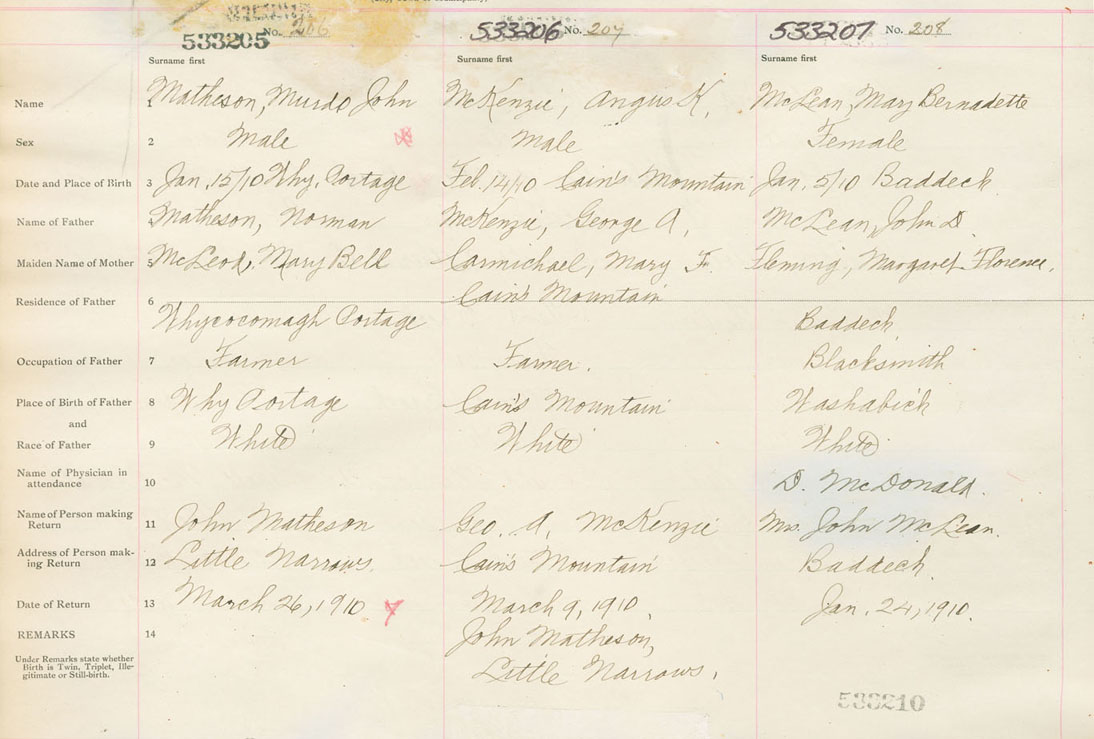 533205 No. 206 533206 No. 207 533207 No. 208
Surname first Surname first Surname first
Name 1 Matheson, Murdo John McKenzie, Angus K. McLean, Mary Bernadette
Sex 2 Male Male Female
Date and Place of Birth 3 Jan. 15/10 Why. Portage Feb. 14/10 Cain's Mountain Jan. 5/10 Baddeck
Name of Father 4 Matheson, Norman McKenzie, George A. McLean, John D.
Maiden Name of Mother 5 McLeod, Mary Bell Carmichael, Mary F. Fleming, Margaret Florence.
Residence of Father 6 Whycocomagh Portage Cain's Mountain Baddeck
Occupation of Father 7 Farmer Farmer. Blacksmith
Place of Birth of Father 8 Why Portage Cain's Mountain Washabuck
and
Race of Father 9 White White White
Name of Physician in
attendance 10 D. McDonald.
Name of Person making
Return 11 John Matheson Geo. A. McKenzie Mrs. John McLean.
Address of Person mak-
ing Return 12 Little Narrows. Cain's Mountain Baddeck.
Date of Return 13 March 26, 1910 March 9, 1910. Jan. 24, 1910.
REMARKS 14 John Matheson,
Under Remarks state whether
Birth is Twin, Triplet, Ille-
gitimate or Still-birth.
Little Narrows.
533210